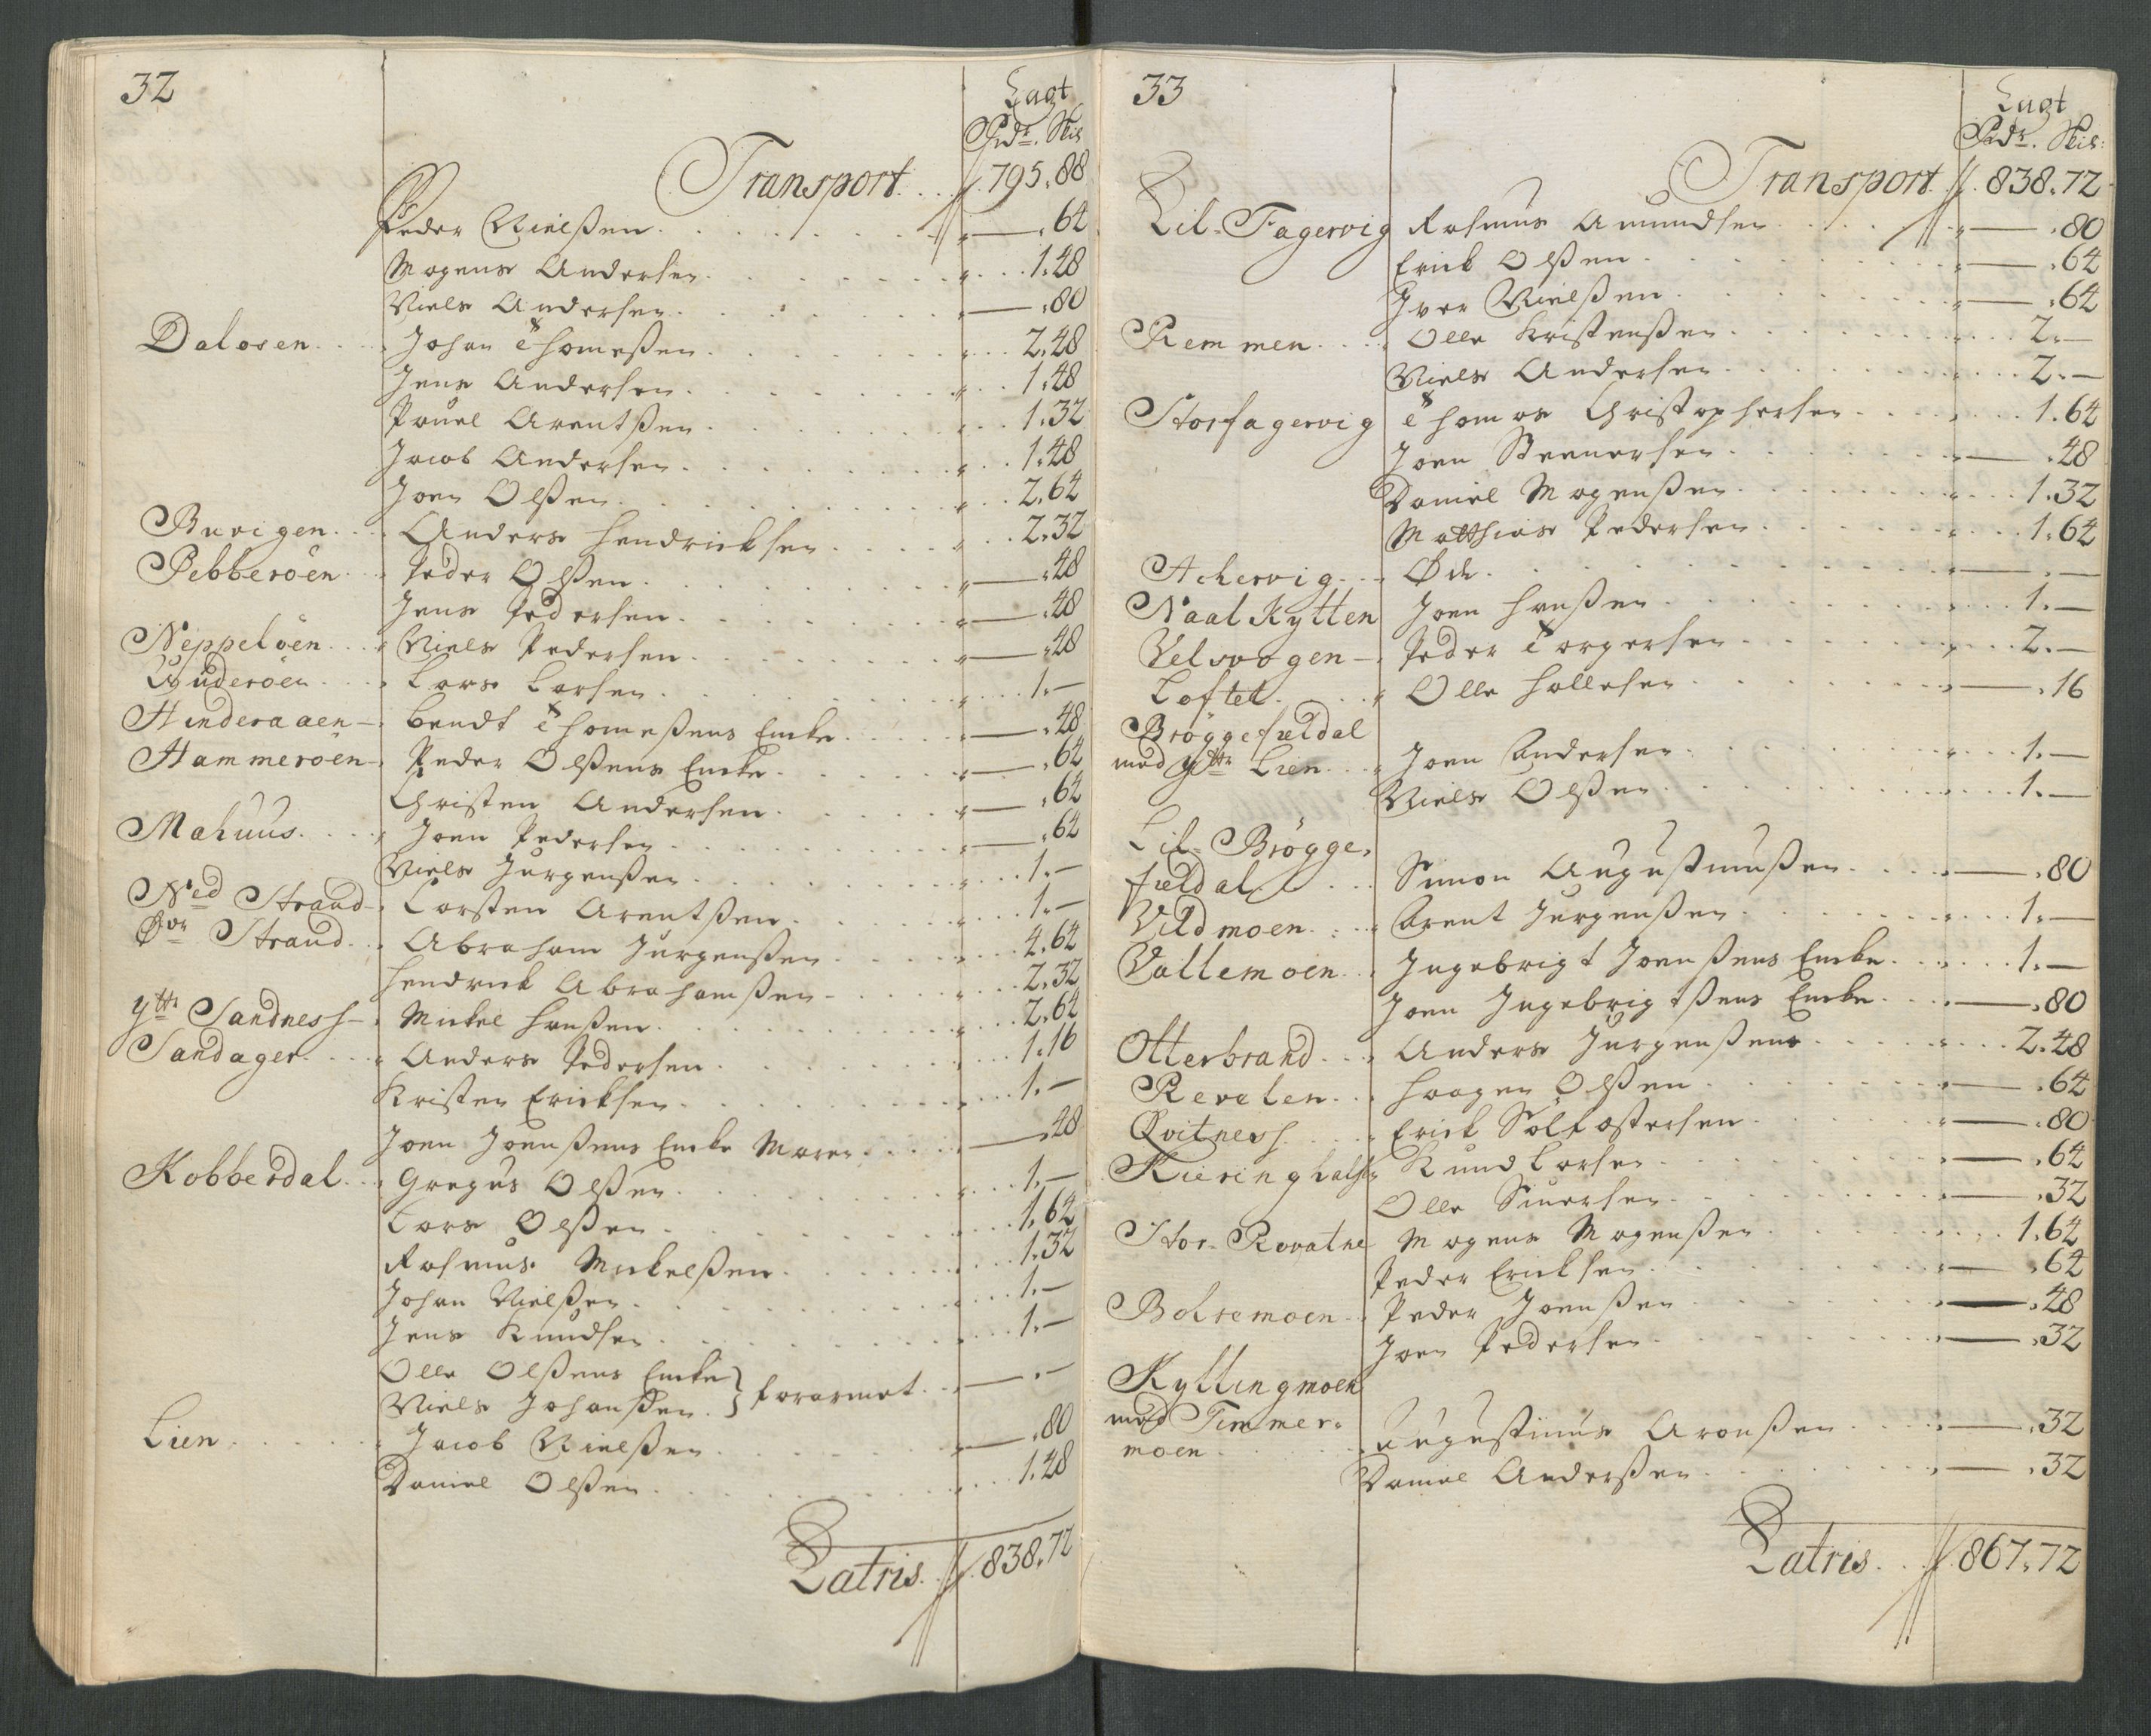 32
Lagt
Rdr. Skil
Transport . . // 795. 88
Peder Nielßen . . . „ — . 64
Mogens Andersen . . . „ . . 1. 48
Niels Andersen . . . „ — . 80
Dalosen . . . Johan Thomeßen . . . „ . . 2. 48
Jens Andersen . . . „ . . 1. 48
Pouel Arentßen . . . 1. 32
Jacob Andersen . . . „ . . 1. 48
Joen Olßen . . . „ . . 2. 64
Buvigen . . . Anders Hendricksen . . . „ . . 2. 32
Pebberöen . . . Peder Olßen . . . „ — . 48
Jens Pedersen . . . „ — . 48
Neppelöen . . . Niels Pedersen . . . „ — . 48
Luderöen . . . Lars Larsen . . . „ . . 1. —
Hinderaaen — Bendt Thomeßens Encke . . . „ — . 48
Hammeröen — Peder Olßens Encke . . . „ — . 64
Christen Andersen . . . „ — . 64
Mahuus . . . Joen Pedersen . . . „ — . 64
Niels Jürgenßen . . . „ . . 1. —
Ned Strand — Carsten Arentßen . . . „ . . 1. —
Øvr Strand . . . Abraham Jürgenßen . . . „ . . 4. 64
Hendrick Abrahamßen . . . „ . . 2. 32
ytr Sandness — Mickel Hanßen . . . „ . . 2. 64
Sandager . . . Anders Pedersen . . . 1. 16
Kristen Ericksen . . . „ . . 1. —
Joen Joenßens Encke Maren . . . „ — . 48
Kobberdal . . . Gregus Olßen . . . „ . . 1. —
Lars Olßen . . . 1. 64
Rasmus Mickelßen . . . 1. 32
Johan Nielßen . . . „ . . 1. —
Jens Knudsen . . . „ . . 1. —
Olle Olßens Encke } forarmet . . „ — . —
Niels Johanßen . }
Lien . . . Jacob Nielßen . . . „ — . 80
Daniel Olßen . . . 1. 48
Latris . . // 838. 72
33
Lagt
Rdr. Skil:
Transport // 838. 72
Lil-Fagervig Rasmus Amundsen . . . „ — . 80
Erick Olßen . . . „ — . 64
Iver Nielßen . . . „ — . 64
Remmen . . . Olle Kristenßen . . . 2. —
Niels Andersen . . . 2. —
Storfagervig Thomas Christophersen . . . 1. 64
Joen Steenersen . . . „ — . 48
Daniel Mogenßen . . . 1. 32
Matthias Pedersen . . . 1. 64
Achervig . . . Øde . . . „ — . —
Naal Kytten Joen Hanßen . . . 1. —
Velsvogen — Peder Torgersen . . . 2. —
Loftet . . . Olle Hallesen . . . „ — . 16
Bröggefieldal
med ytr Lien . . . Joen Andersen . . . 1. —
Niels Olßen . . . 1. —
Lil-Brögge-
fieldal . . . Simon Augustinußen . . . „ — . 80
Vildmoen . . . Arent Jürgenßen . . . 1. —
Vallemoen . . . Ingebrigt Joenßens Encke . . . 1. —
Joen Ingebrigtßens Encke . . . „ — . 80
Otterbrand . . . Anders Jürgenßens . . . 2. 48
Revelen . . . Haagen Olßen . . . „ — . 64
Qvitness . . . Erick Solfastersen . . . „ — . 80
Kieringhalsen Knud Larsen . . . „ — . 64
Olle Siversen . . . „ — . 32
Stor-Rovatne Mogens Mogenßen . . . 1. 64
Peder Ericksen . . . „ — . 64
Bolremoen . . . Peder Joenßen . . . „ — . 48
Joen Pedersen . . . „ — . 32
Kyllingmoen
med Timmer-
moen . . . Augustinus Aronßen . . . „ — . 32
Daniel Anderßen . . . „ — . 32
Latris . . // 867. 72